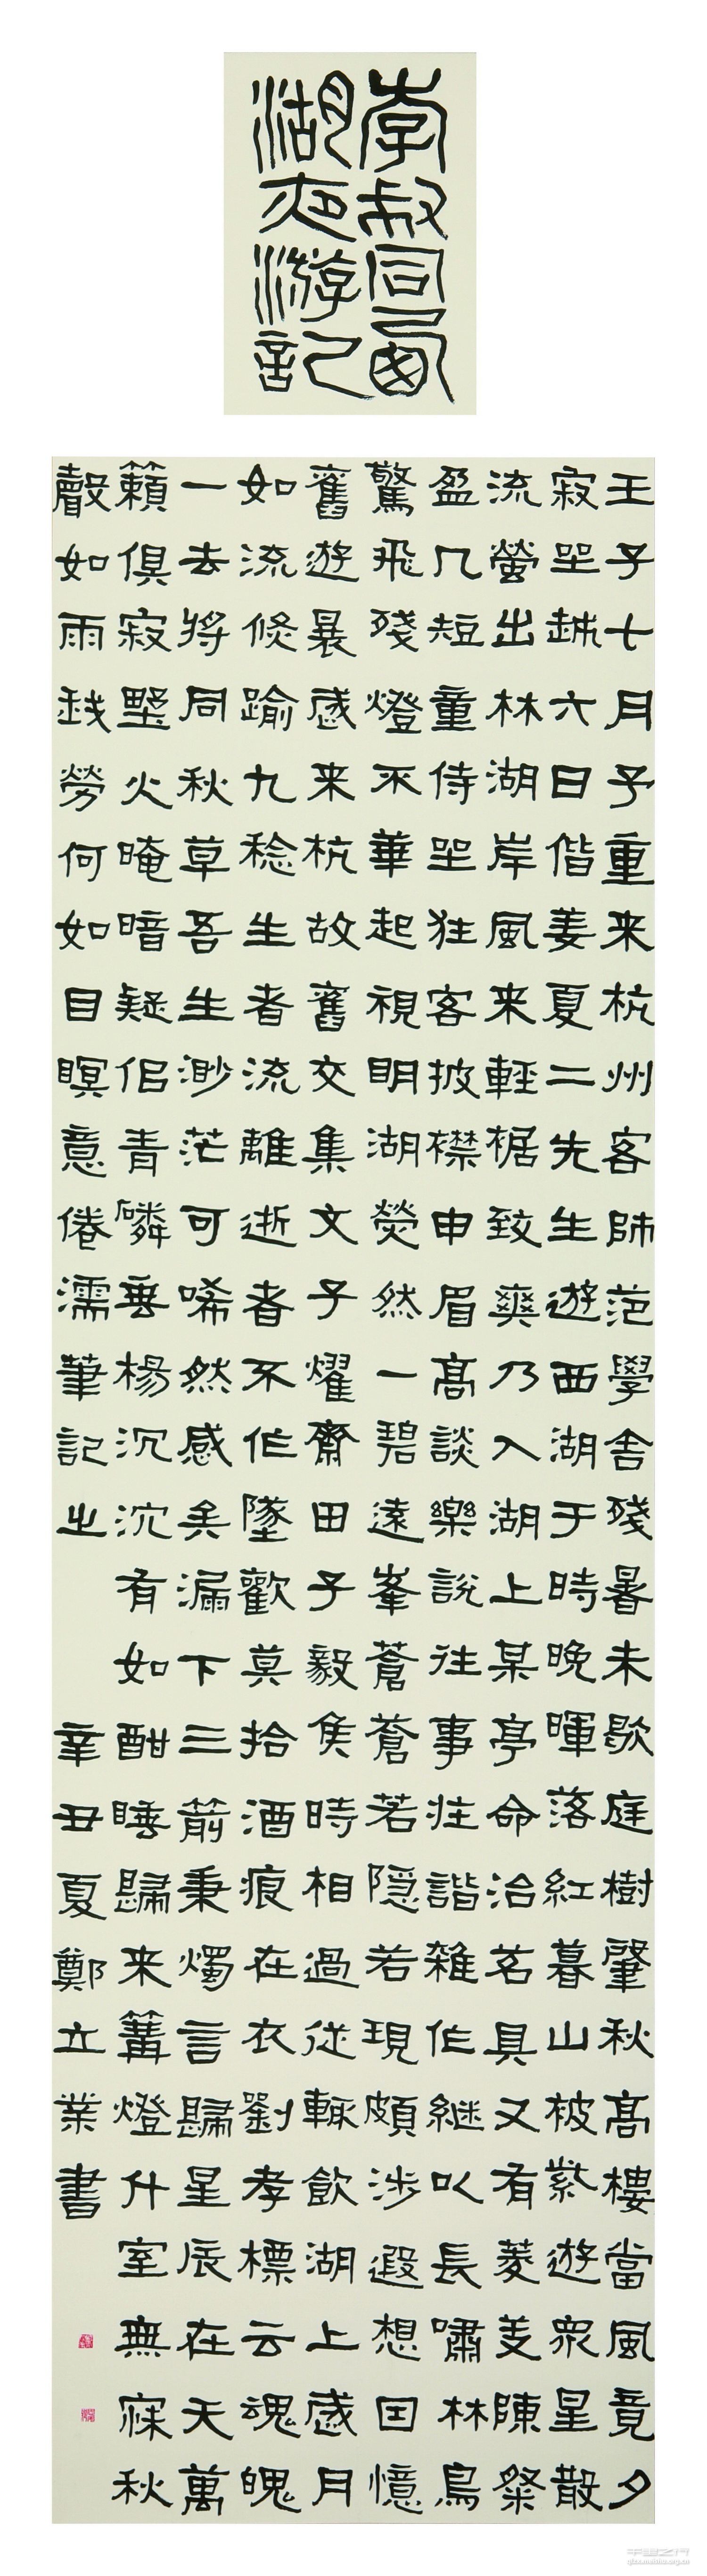 李叔同西
湖夜游記
壬子七月予重来杭州客師范學舍殘暑未歇庭樹肇秋高樓當風竟夕
寂坐越六日偕姜夏二先生遊西湖于時晚暉落紅暮山被紫遊眾星散
流螢出林湖岸風来輕裾致爽乃入湖上某亭命治茗具又有菱芰陳粲
盈几短童侍坐狂客披襟申眉高談樂說往事庄諧雜作継以長嘯林鳥
驚飛殘燈不華起視明湖熒然一碧遠峯蒼蒼若隱若現頗涉遐想因憶
舊遊曩歲来杭故舊交集文子耀齋田子毅侯時相過從輒飲湖上歲月
如流倏踰九稔生者流離逝者不作墜歡莫拾酒痕在衣劉孝標云魂魄
一去將同秋草吾生渺茫可唏然感矣漏下三箭秉燭言歸星辰在天萬
籟俱寂野火晻暗疑佀青燐垂楊沉沉有如酣睡歸来篝燈升室無寐秋
聲如雨我勞何如目瞑意倦濡筆記之
辛丑夏鄭立業書